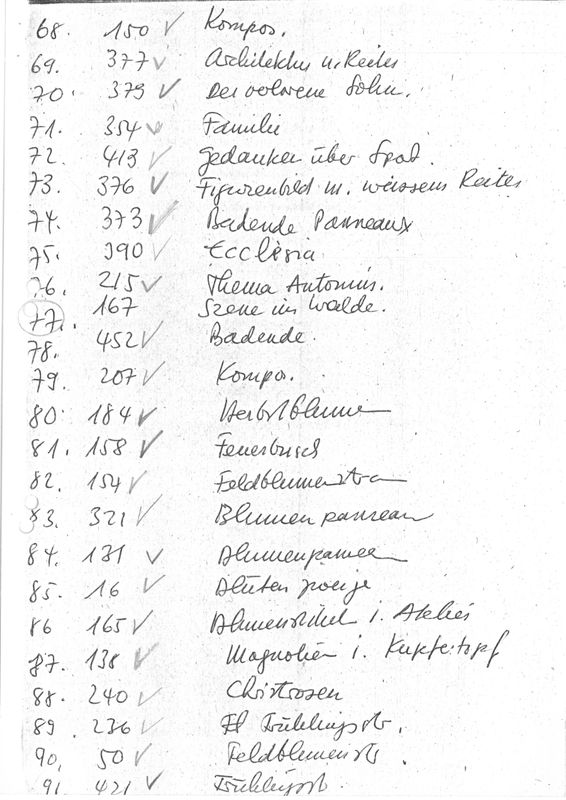 68. 150 ✓ Kompos.
69. 377 ✓ Architektur u. Reiter
70. 379 ✓ Der verlorene Sohn.
71. 354 ✓ Familie
72. 413 ✓ Gedanken über Spat.
73. 376 ✓ Figurenbild m. weissem Reiter
74. 373 ✓ Badende Panneaux
75. 390 ✓ Ecclesia
76. 215 ✓ Thema Antonius.
77. 167 Szene im Walde.
78. 452 ✓ Badende.
79. 207 ✓ Kompos.
80. 184 ✓ Herbstblumen
81. 158 ✓ Feuerbusch
82. 154 ✓ Feldblumenstrau
83. 321 ✓ Blumenpanneau
84. 131 ✓ Blumenpanneau
85. 16 ✓ Blütenzweige
86 165 ✓ i. Atelier
87. 138 ✓ Magnolien i. Kupfertopf
88. 240 ✓ Christrosen
89. 236 ✓ Frühlingsstr.
90. 50 ✓ Feldblumenstr
91 421 ✓ Frühlingsst.